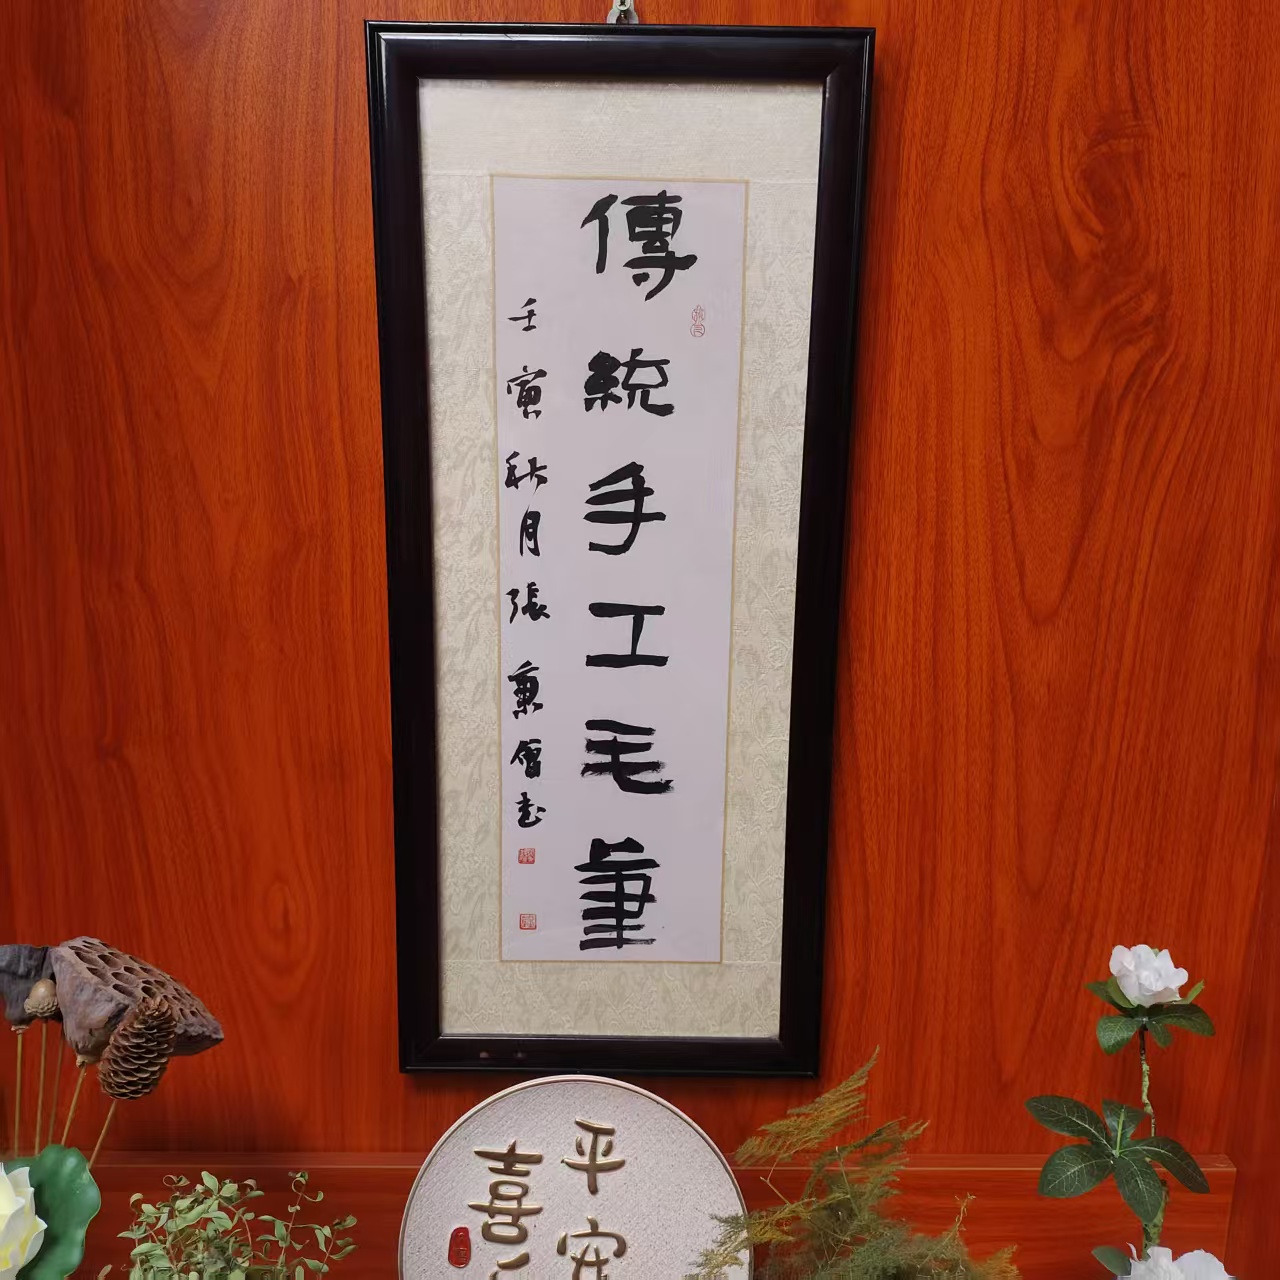 傳統手工毛筆
壬寅秋月張兼僧書
平安
喜